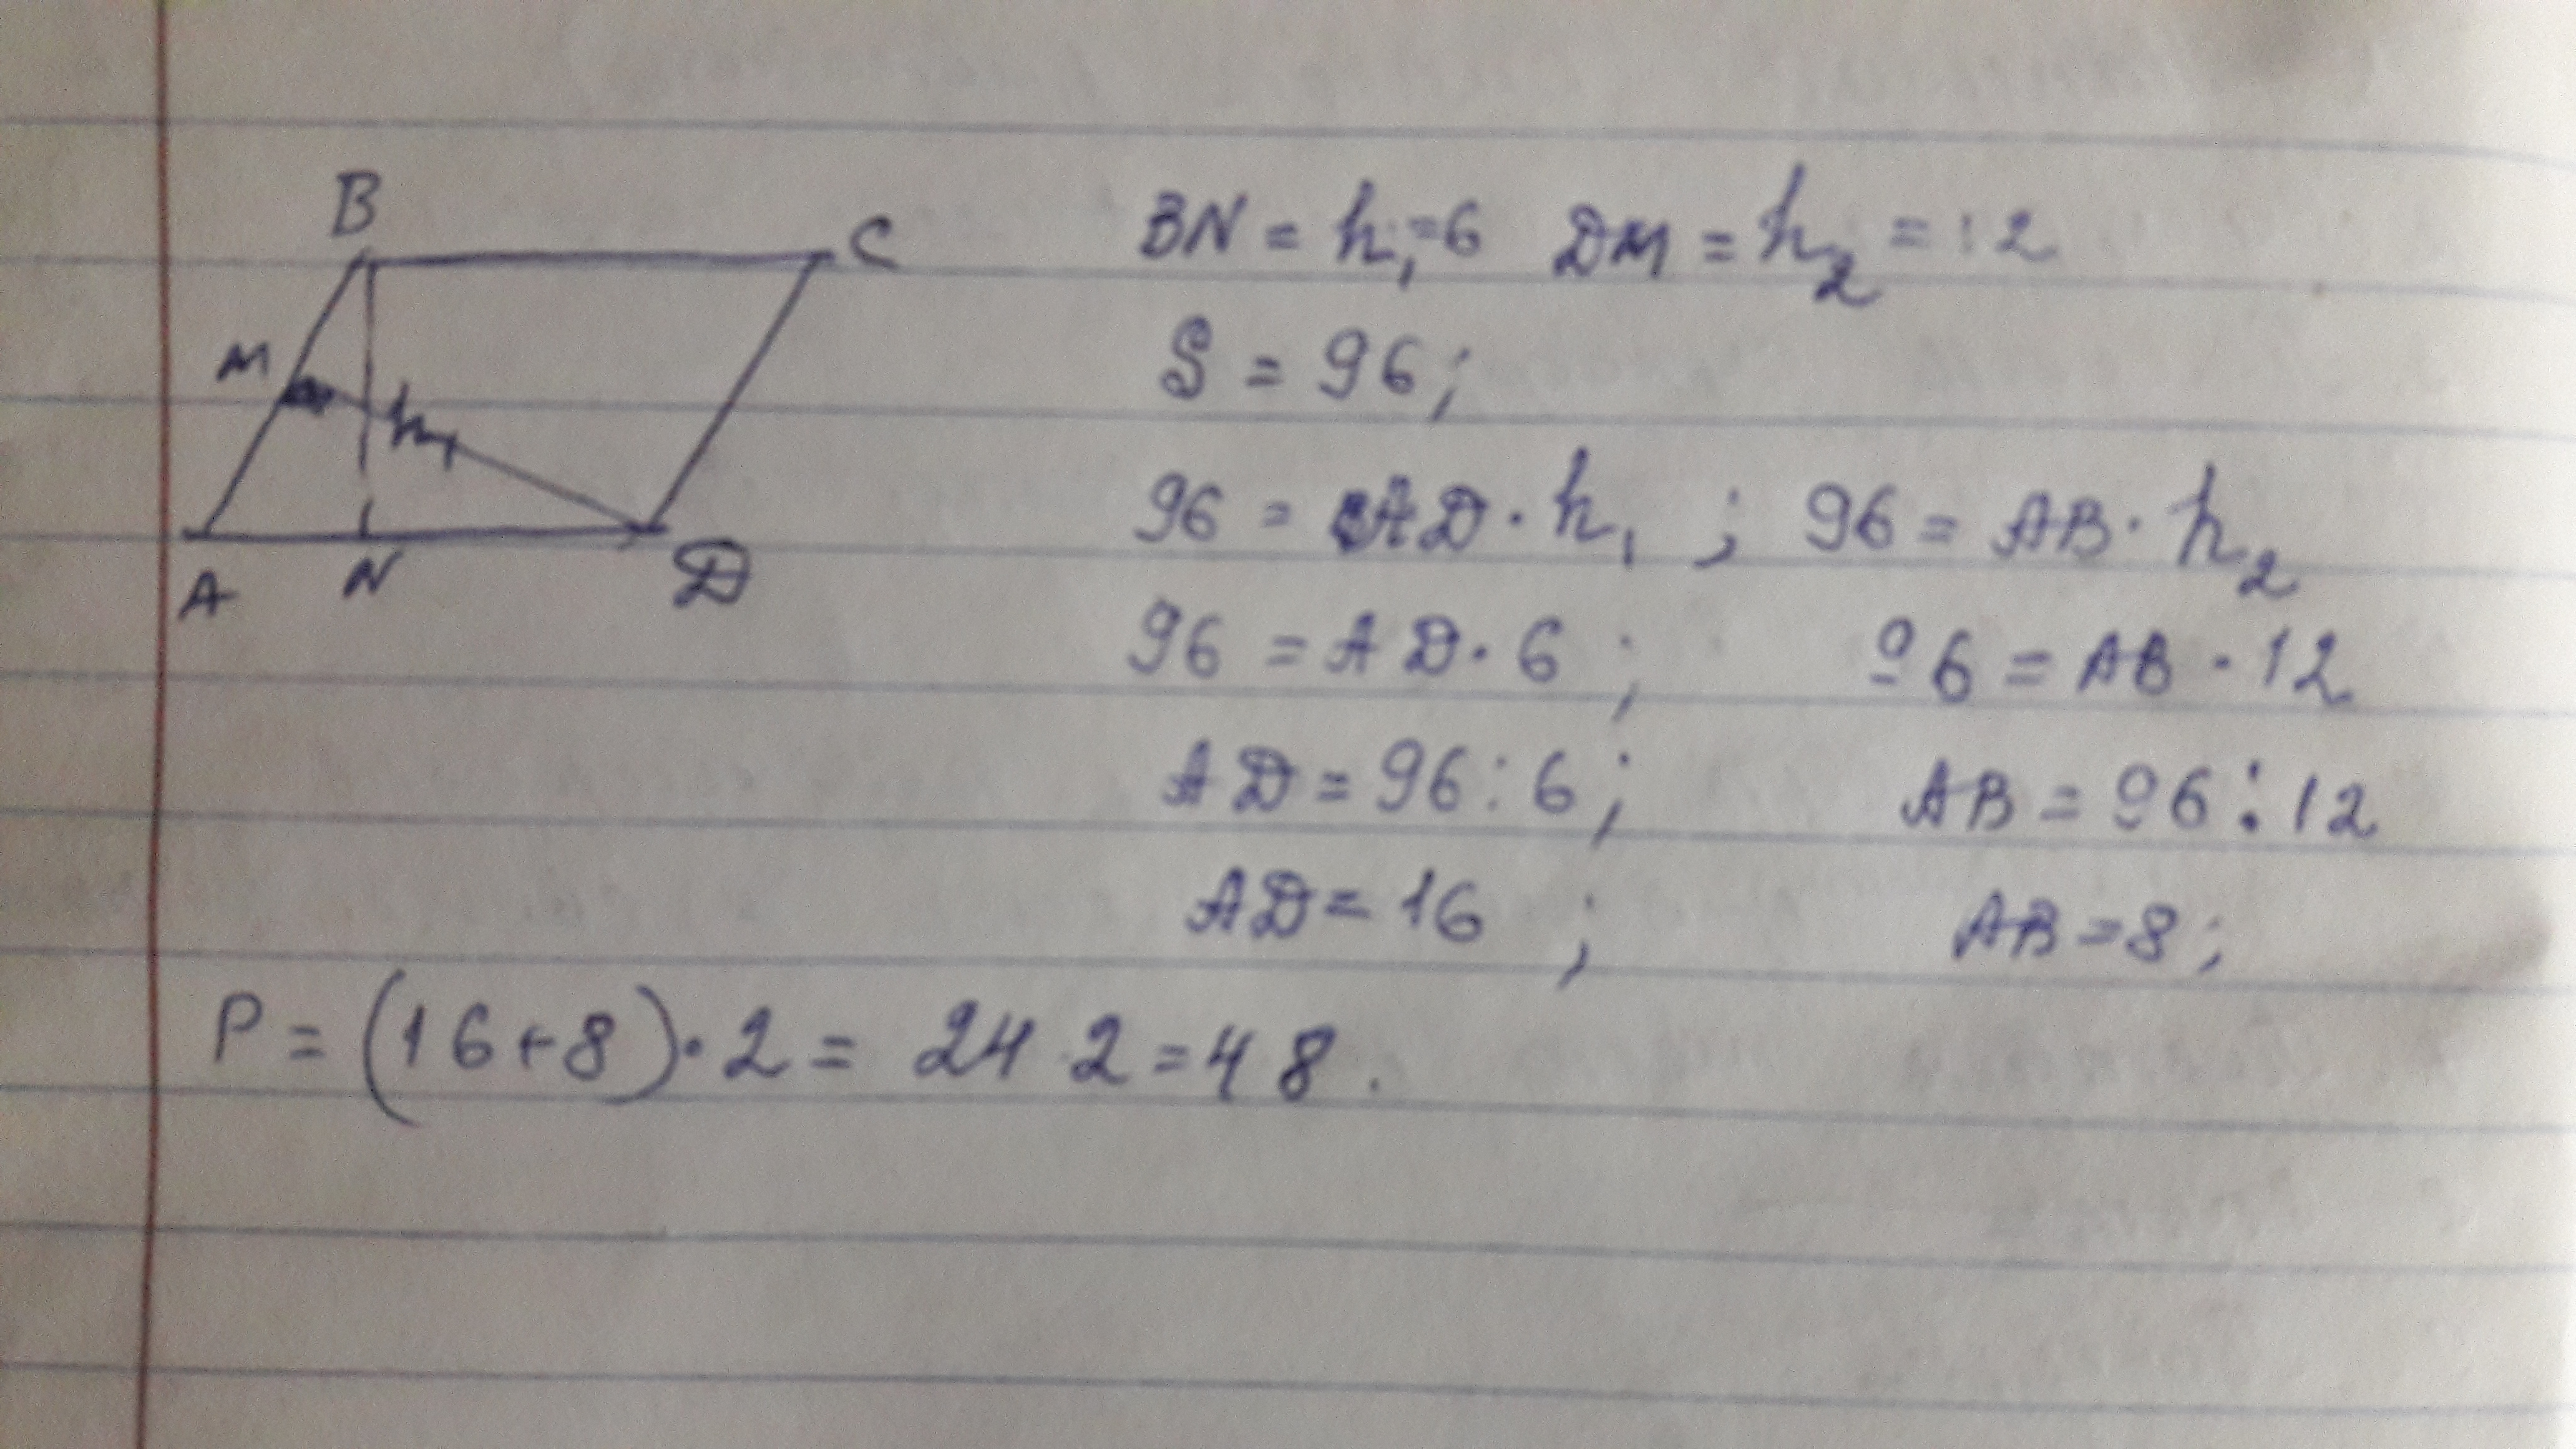 B
C
M
h₁
A N D
BN = h₁ = 6 DM = h₂ = 12
S = 96;
96 = AD · h₁ ; 96 = AB · h₂
96 = AD · 6 ; 96 = AB · 12
AD = 96 : 6 ; AB = 96 : 12
AD = 16 ; AB = 8 ;
P = (16+8) · 2 = 24 2 = 48.